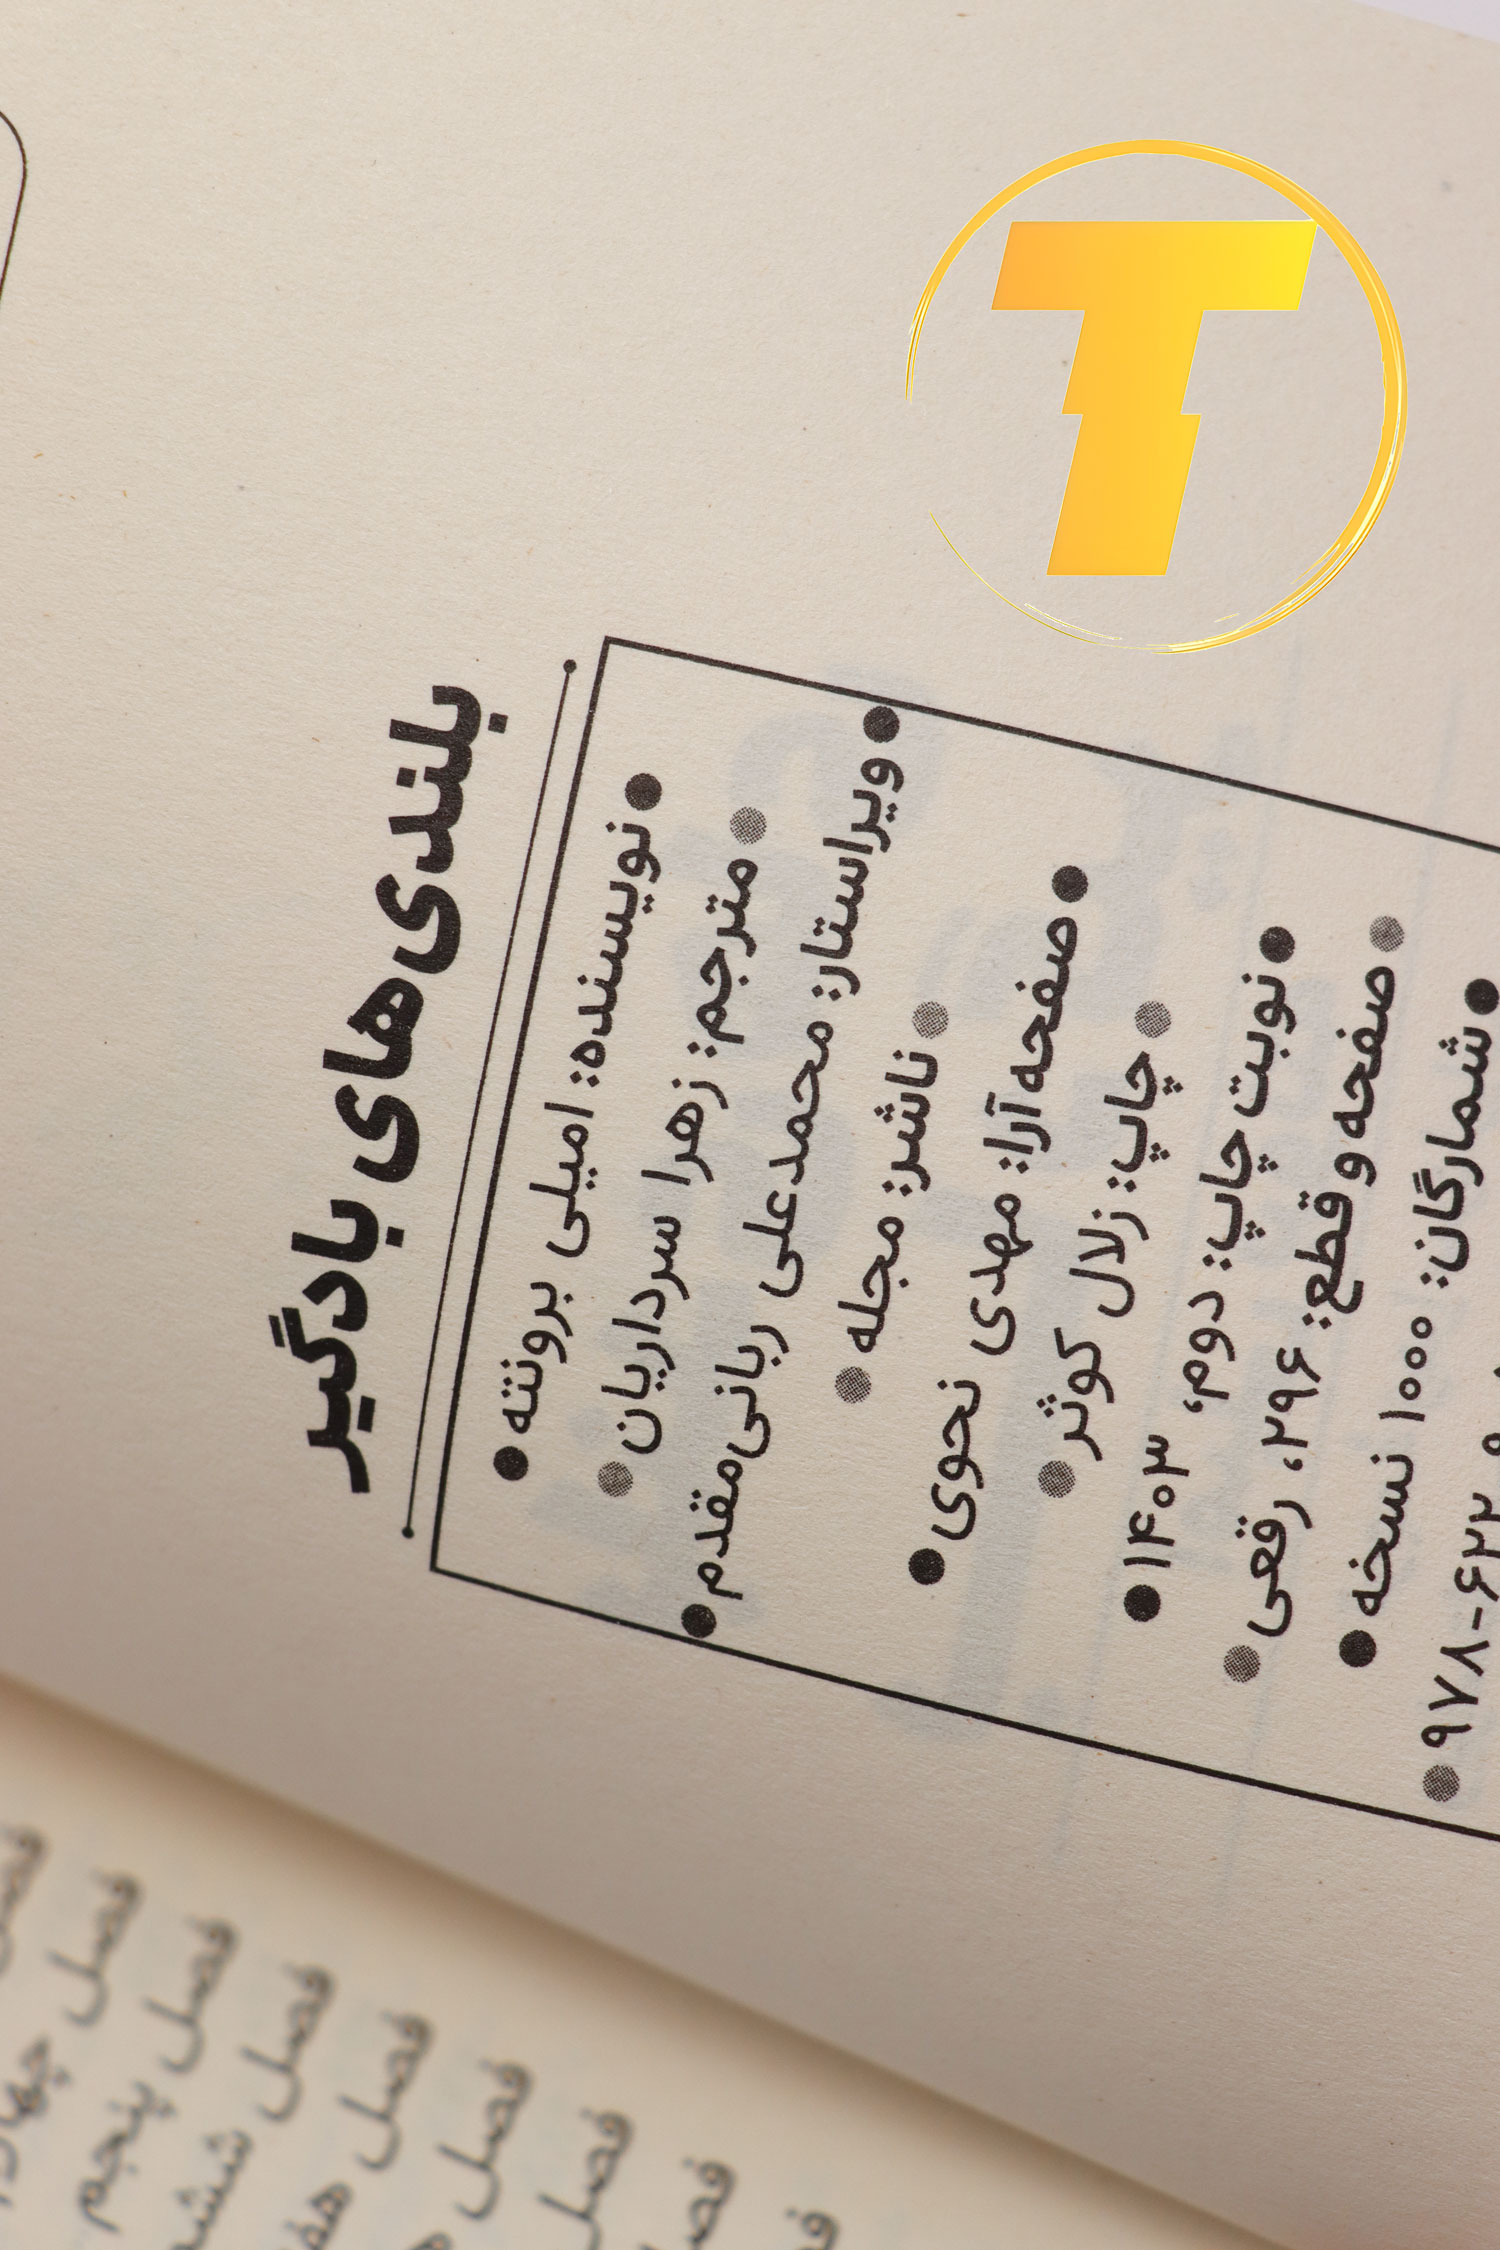 بلندی‌های بادگیر
● نویسنده: امیلی برونته ●
● مترجم: زهرا سرداریان ●
● ویراستار: محمدعلی ربانی‌مقدم ●
● ناشر: مجله ●
● صفحه‌آرا: مهدی نحوی ●
● چاپ: زلال کوثر ●
● نوبت چاپ: دوم، ۱۴۰۳ ●
● صفحه و قطع: ۲۹۶، رقعی ●
● شمارگان: ۱۰۰۰ نسخه ●
۹۷۸-۶۲۲ ●
فصل
فصل چهار
فصل پنجم
فصل شش
فصل هف
فصل
فصل
T